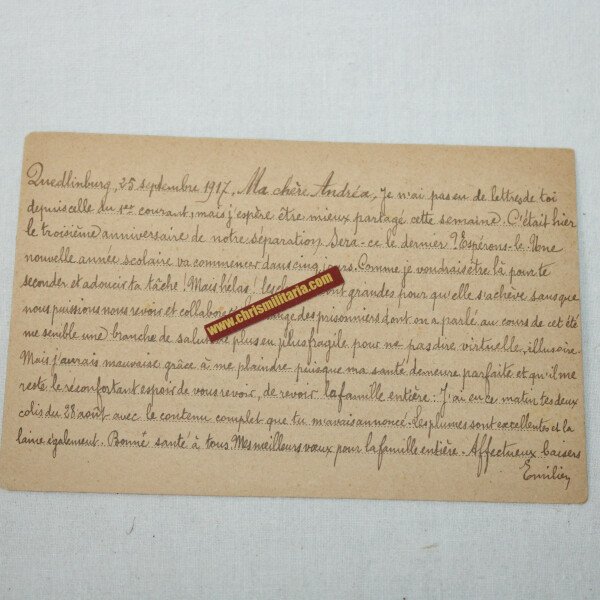 Quedlinburg, 25 septembre 1917. Ma chère Andréa, Je n'ai pas eu de lettres de toi
depuis celle du 1er courant, mais j'espère être mieux partagé cette semaine. C'était hier
le troisième anniversaire de notre séparation. Sera-ce le dernier ? Espérons-le. Une
nouvelle année scolaire va commencer dans cinq jours. Comme je voudrais être là pour te
seconder et adoucir ta tâche! Mais hélas! les sont grandes pour qu'elle s'achève sans que
nous puissions nous revoir et des prisonniers dont on a parlé au cours de cet été
me semble une branche de salut de plus en plus fragile pour ne pas dire virtuelle, illusoire.
Mais j'aurais mauvaise grâce à me plaindre puisque ma santé demeure parfaite et qu'il me
reste le réconfortant espoir de vous revoir, de revoir la famille entière. J'ai eu ce matin tes deux
colis du août avec le contenu complet que tu m'avais annoncé. Les plumes sont excellentes et la
laine également. Bonne santé à tous. Mes meilleurs vœux pour la famille entière. Affectueux baisers
Emilien
www.chrismilitaria.com